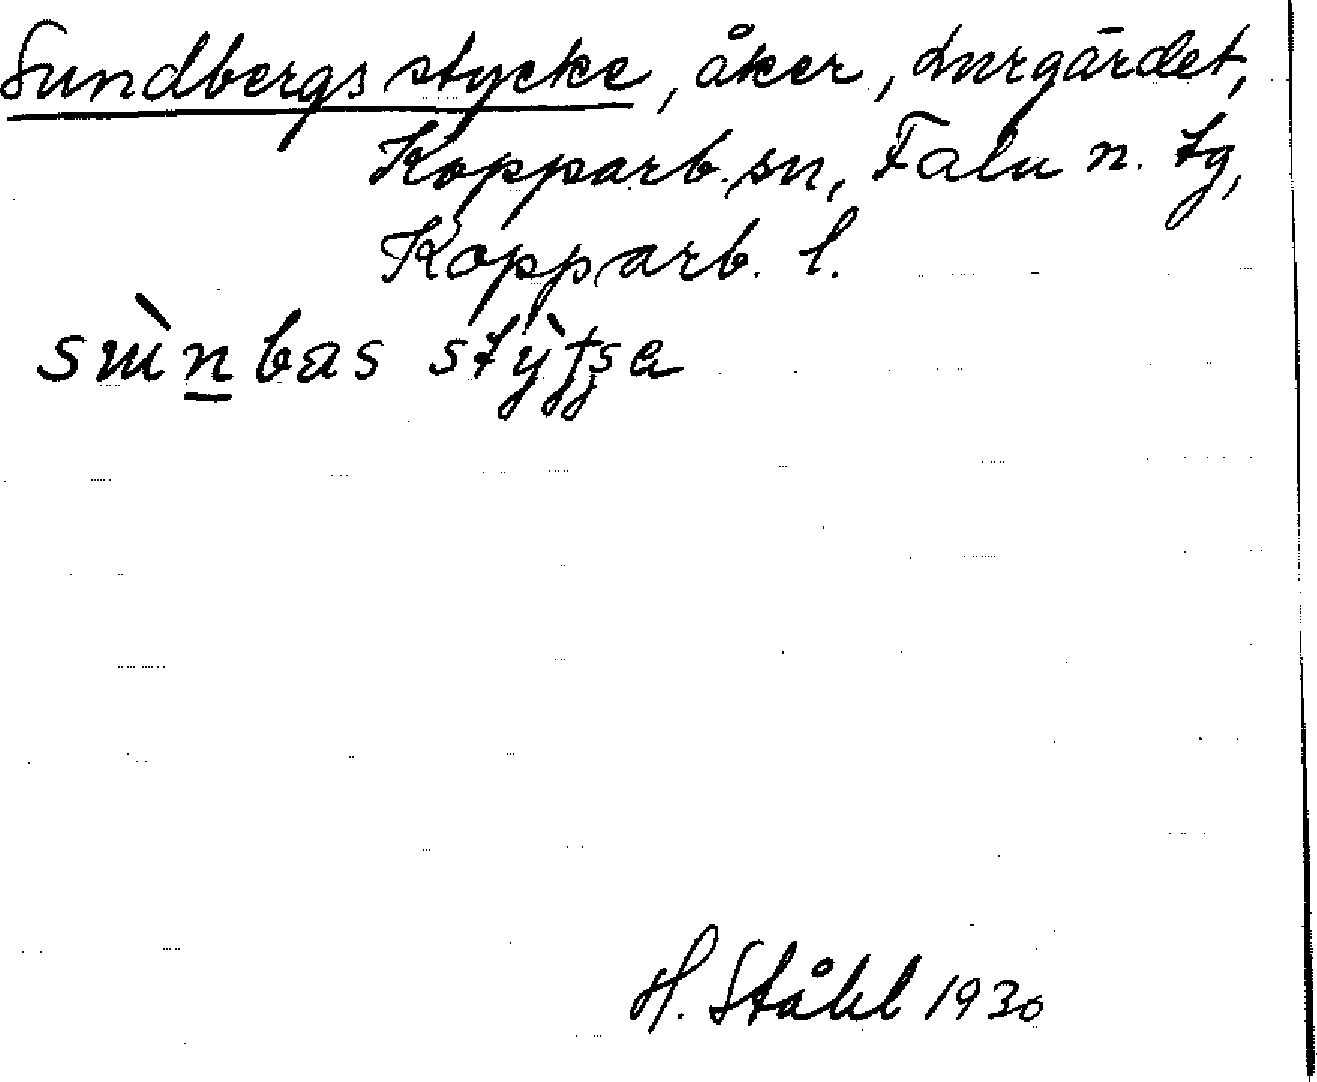 Sundbergs stycke, åker, Lurgärdet,
Kopparb. sn, Falu n. tg,
Kopparb. l.
H. Ståhl 1930